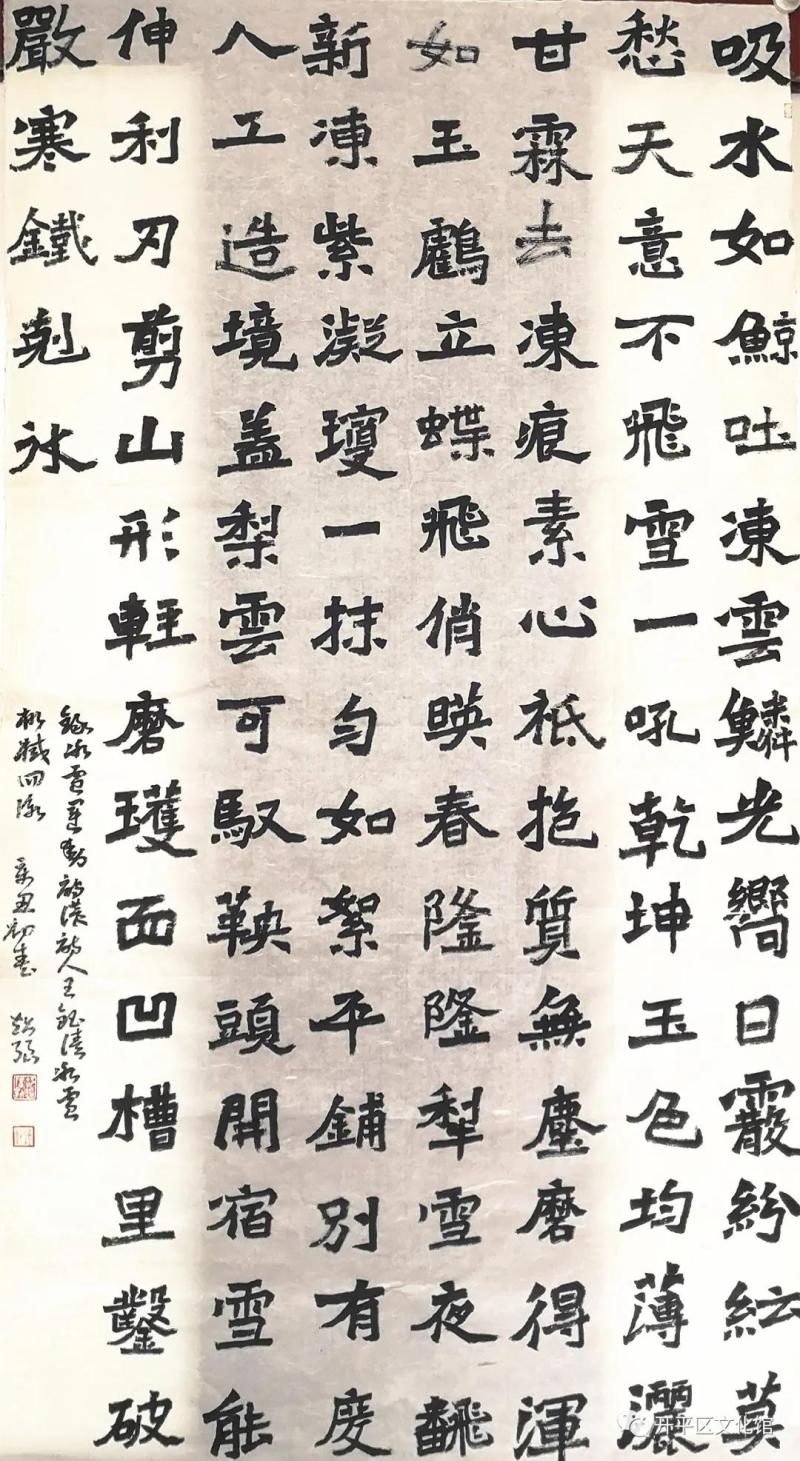 吸水如鯨吐凍雲鱗光嚮日霰紛紜莫
愁天意不飛雪一吼乾坤玉色均薄灑
甘霖去凍痕素心祗抱質無塵磨得渾
如玉鸖立蝶飛俏暎春隆隆犁雪夜飜
新凍紫凝瓊一抹勻如絮平鋪別有度
人工造境蓋梨雲可馭鞅頭開宿雪能
伸利刃剪山形輕磨瓁面凹槽里鑿破
嚴寒鐵剋冰
錄冰雪運動詩人王鈺清冰雪
機械四詠 辛丑初春
开平区文化馆